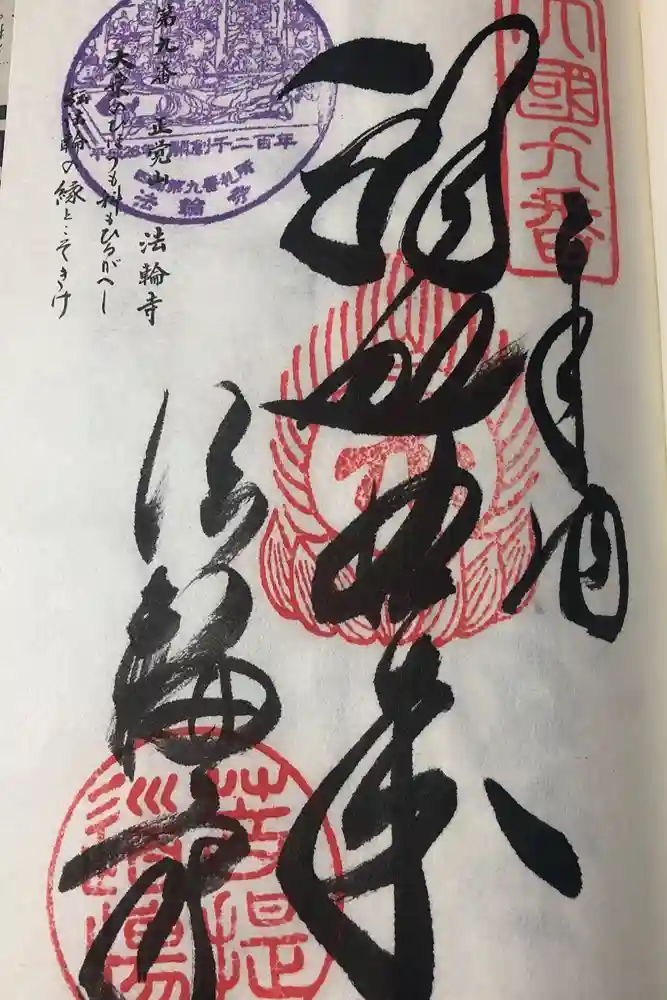 四國九番
奉納
釈迦如来
法輪寺
菩提
道場
平成26年 開創千二百年
四国第九番札所
法輪寺
第九番 正覚山 法輪寺
大乗のひほうも科もひるがへし
転法輪の縁とこそきけ